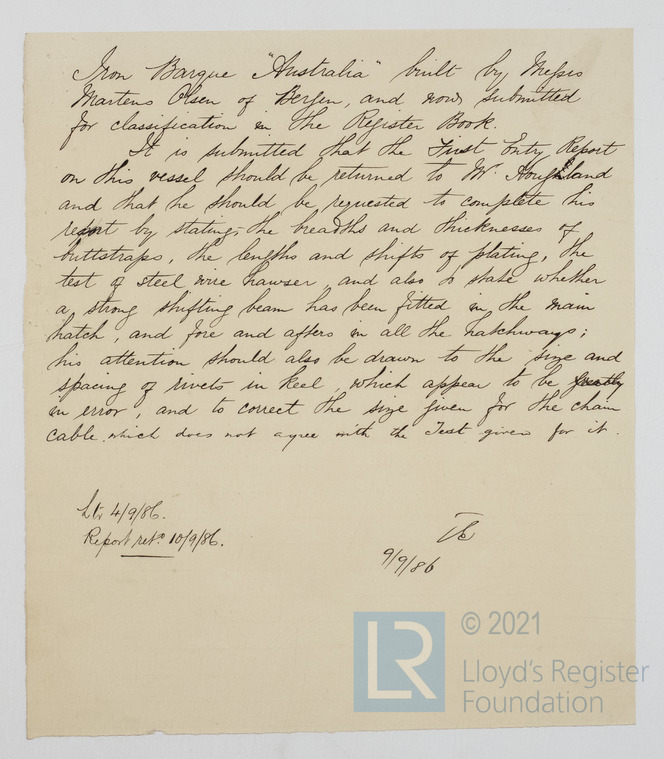 Iron Barque "Australia" built by Messrs
Martens Olsen of Bergen, and now submitted
for classification in the Register Book.
It is submitted that the First Entry Report
on this vessel should be returned to Mr. Houghland
and that he should be requested to complete his
report by stating, the breadths and thicknesses of
buttstraps, the lengths and shifts of plating, the
test of steel wire hawser and also to state whether
a strong shifting beam has been fitted in the main
hatch, and fore and afters in all the hatchways;
his attention should also be drawn to the size and
spacing of rivets in keel, which appear to be
in error, and to correct the size given for the chain
cable which does not agree with the Test given for it.
Ltr 4/9/86.
Report retd. 10/9/86.
9/9/86
LR
© 2021
Lloyd's Register
Foundation